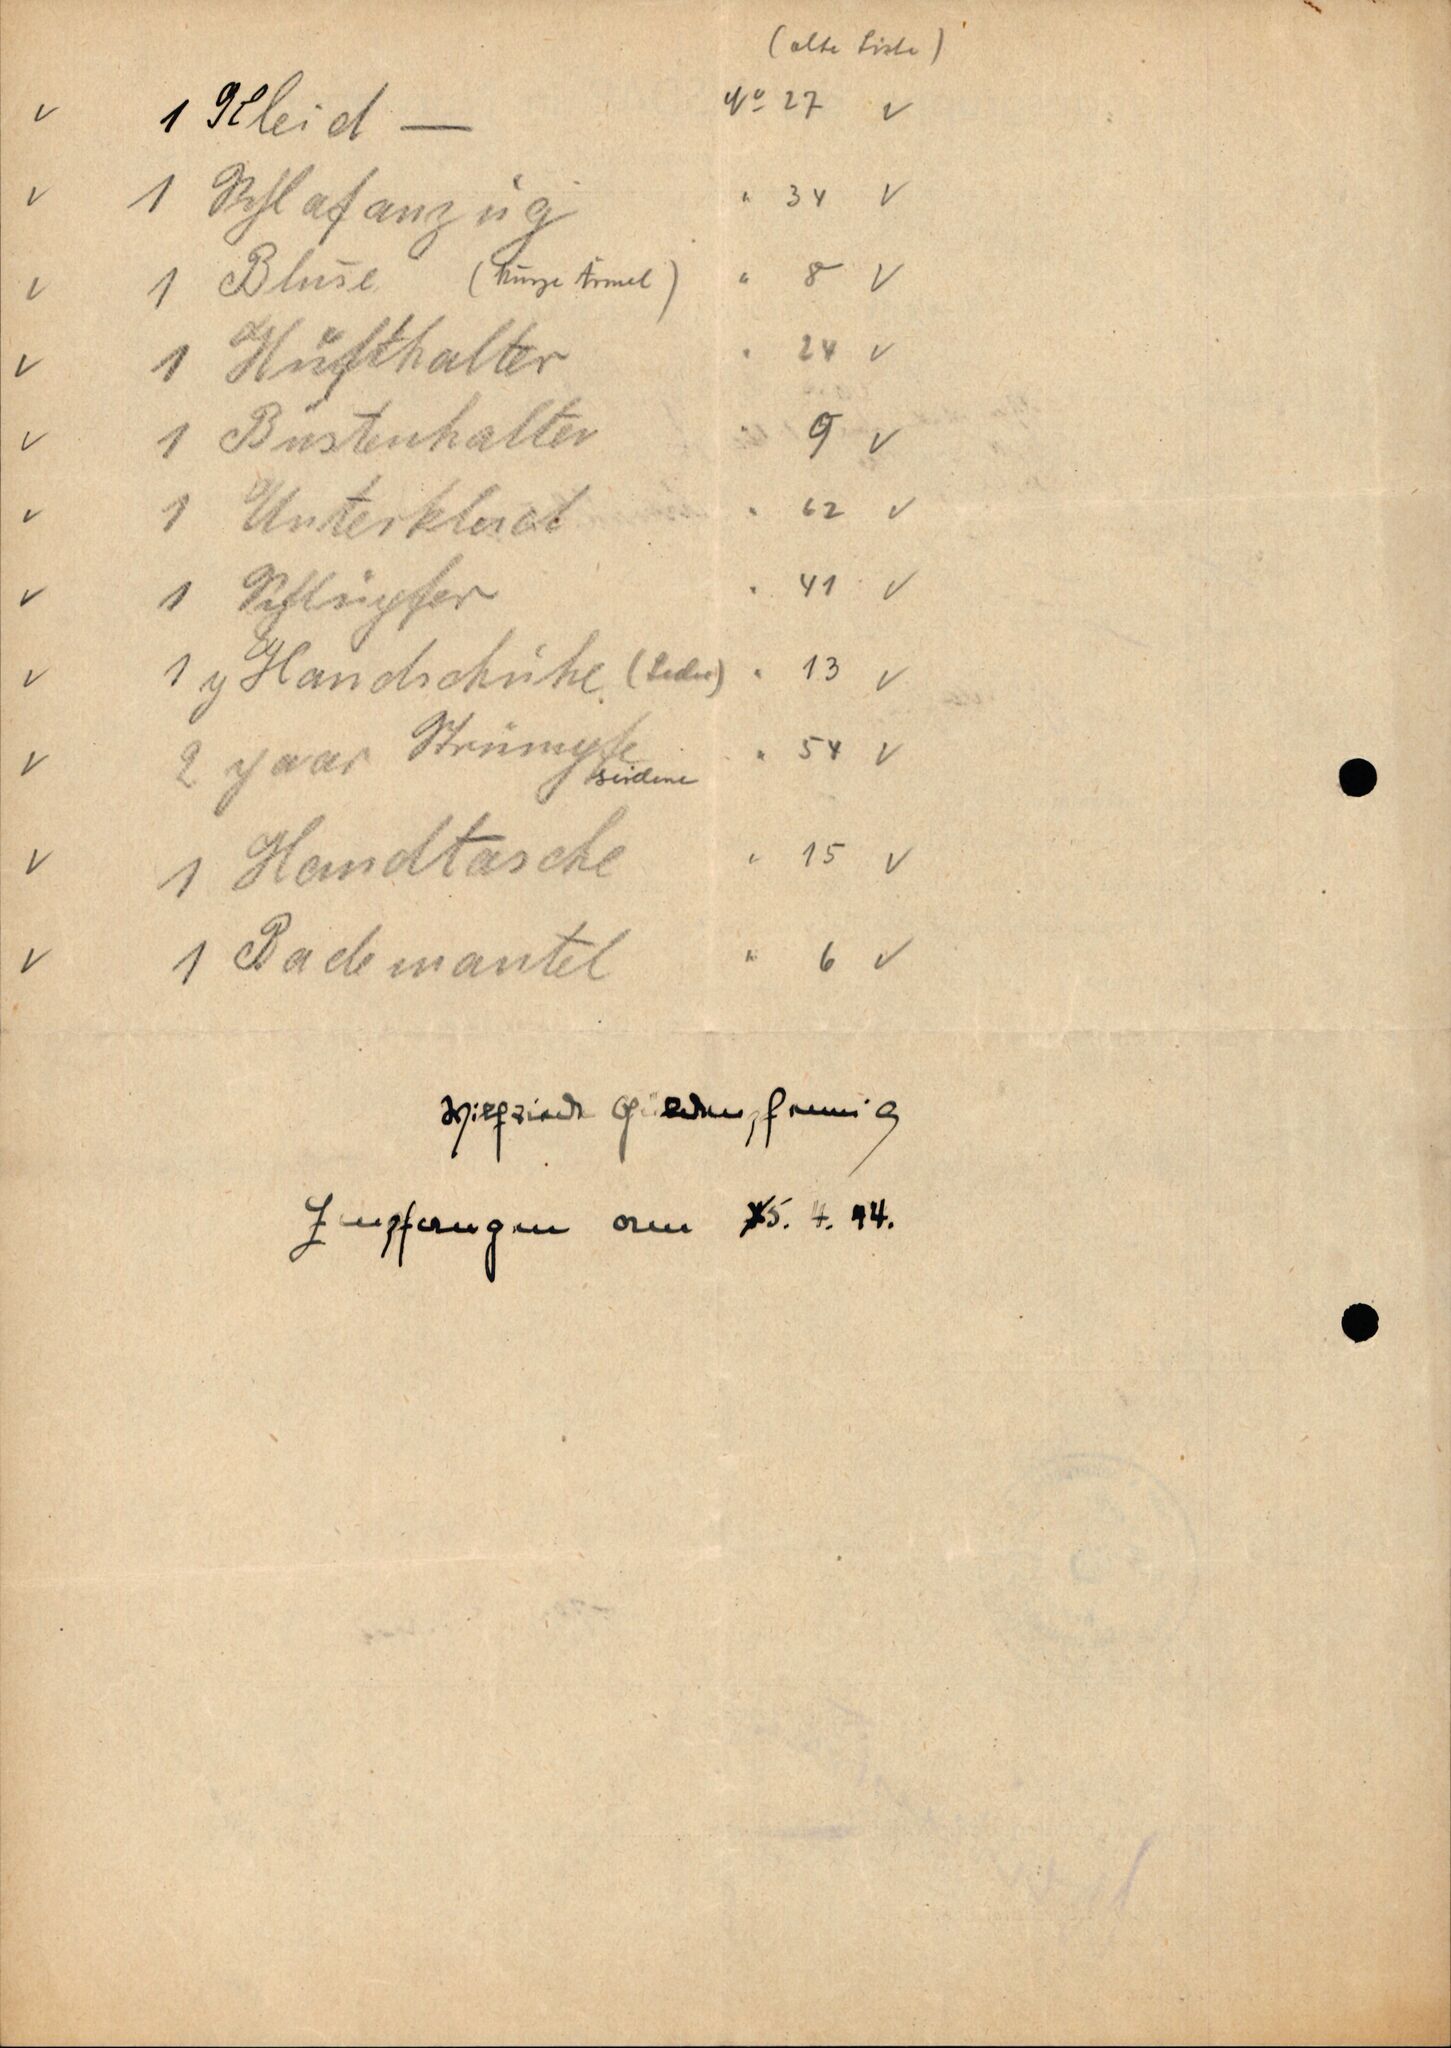 (alte Liste)
✓ 1 Kleid — No 27 ✓
✓ 1 Schlafanzug " 34 ✓
✓ 1 Bluse (kurze Ärmel) " 8 ✓
✓ 1 Hüfthalter " 24 ✓
✓ 1 Büstenhalter " 9 ✓
✓ 1 Unterkleid " 62 ✓
✓ 1 Schlüpfer " 41 ✓
✓ 1 p Handschuhe (Leder) " 13 ✓
✓ 2 paar Strümpfe " 54 ✓
seidene
✓ 1 Handtasche " 15 ✓
✓ 1 Bademantel " 6 ✓
Güldenpfennig
Empfangen am 5. 4. 44.